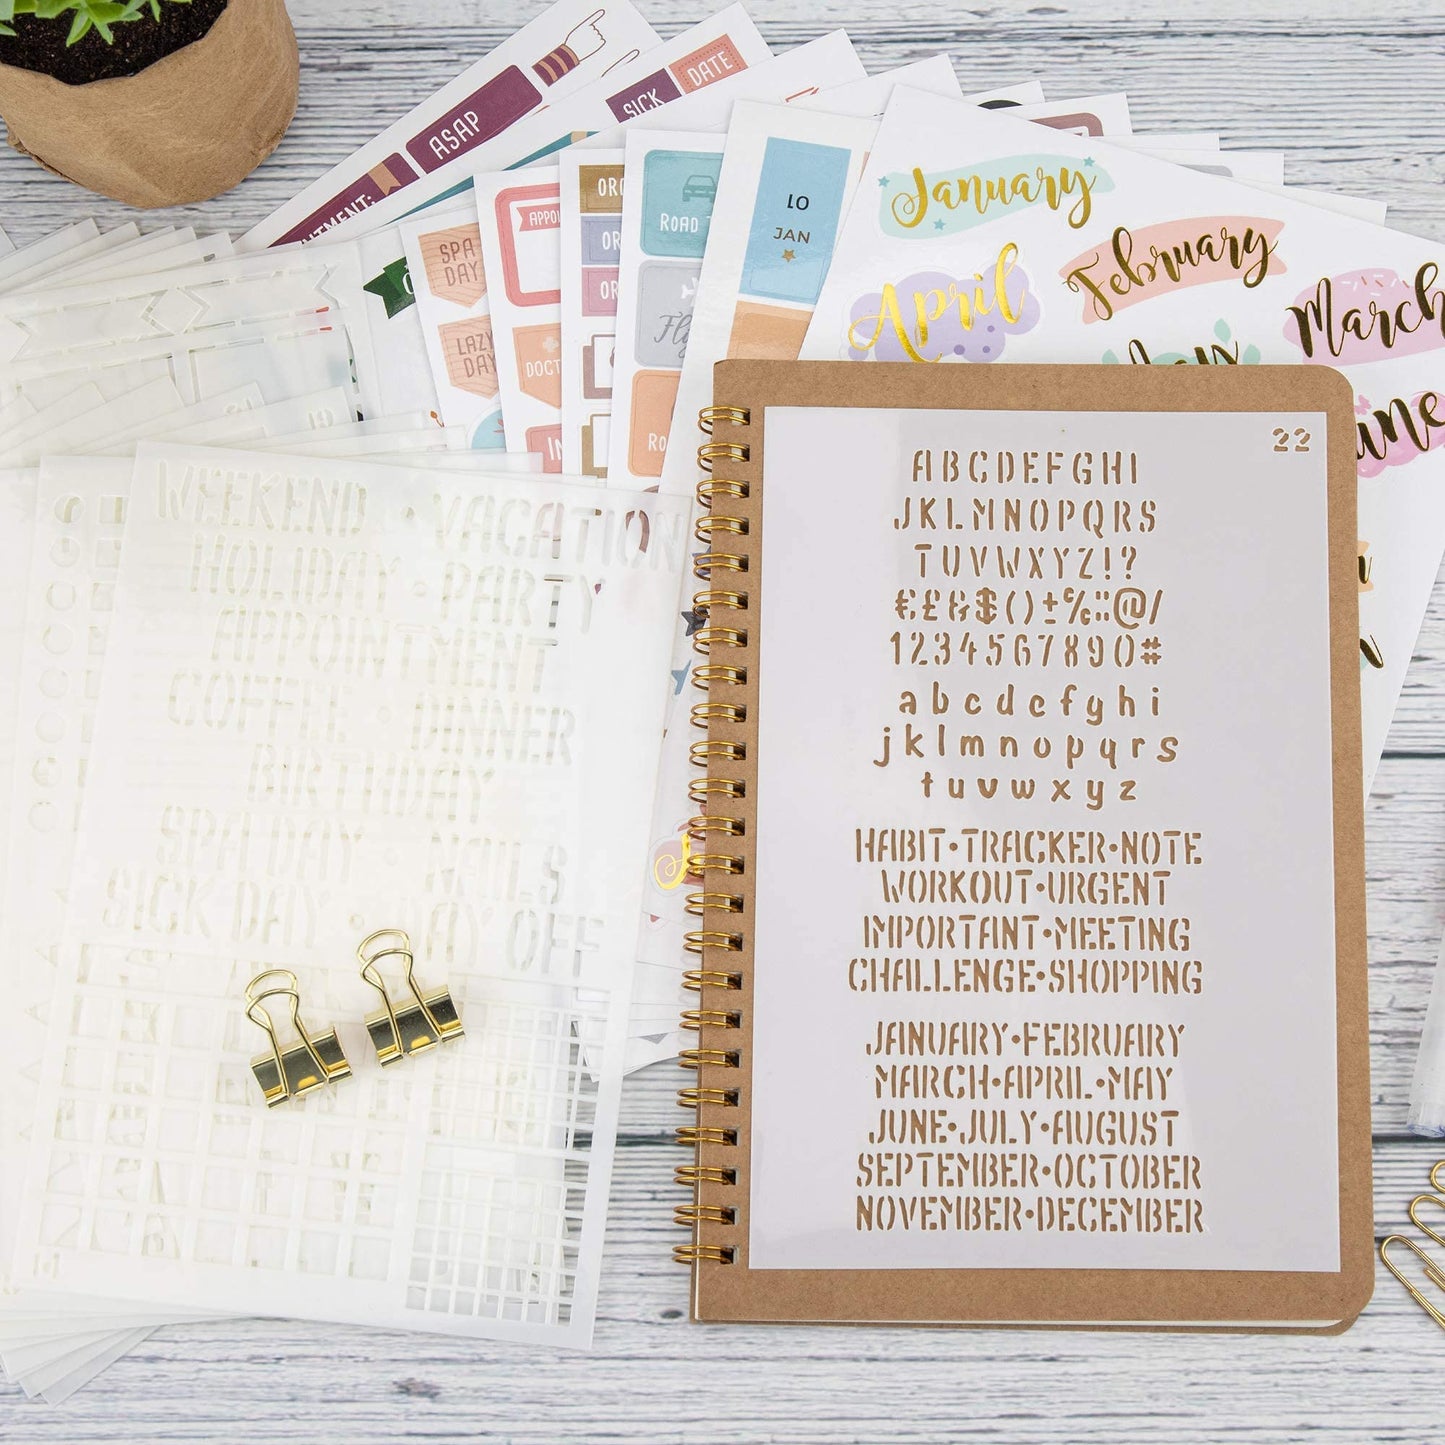 ASAP
SICK
DATE
SPA
DAY
LAZY
DAY
LO
JAN
January
February
March
April
22
ABCDEFGHI
JKLMNOPQRS
TUVWXYZ!?
1234567890#
abcdefghi
jklmnopqrs
tuvwxyz
HABIT•TRACKER•NOTE
WORKOUT•URGENT
IMPORTANT•MEETING
CHALLENGE•SHOPPING
JANUARY•FEBRUARY
MARCH•APRIL•MAY
JUNE•JULY•AUGUST
SEPTEMBER•OCTOBER
NOVEMBER•DECEMBER
WEEKEND • VACATION
HOLIDAY • PARTY
APPOINTMENT
COFFEE • DINNER
BIRTHDAY
SPA DAY • NAILS
SICK DAY • AY OFF